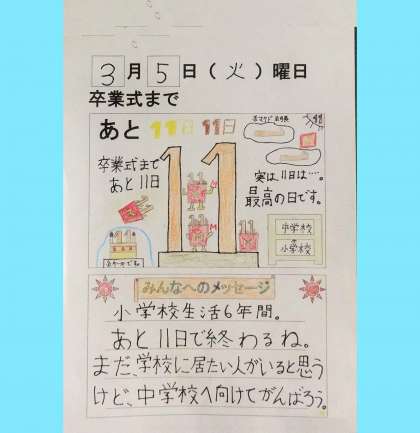 3月5日(火)曜日
卒業式まで
あと 11日 11日
卒業式まで
あと11日
11
実は11日は…。
最高の日です。
中学校
小学校
みんなへのメッセージ
小学校生活6年間。
あと11日で終わるね。
まだ、学校に居たい人がいると思う
けど、中学校へ向けてがんばろう。